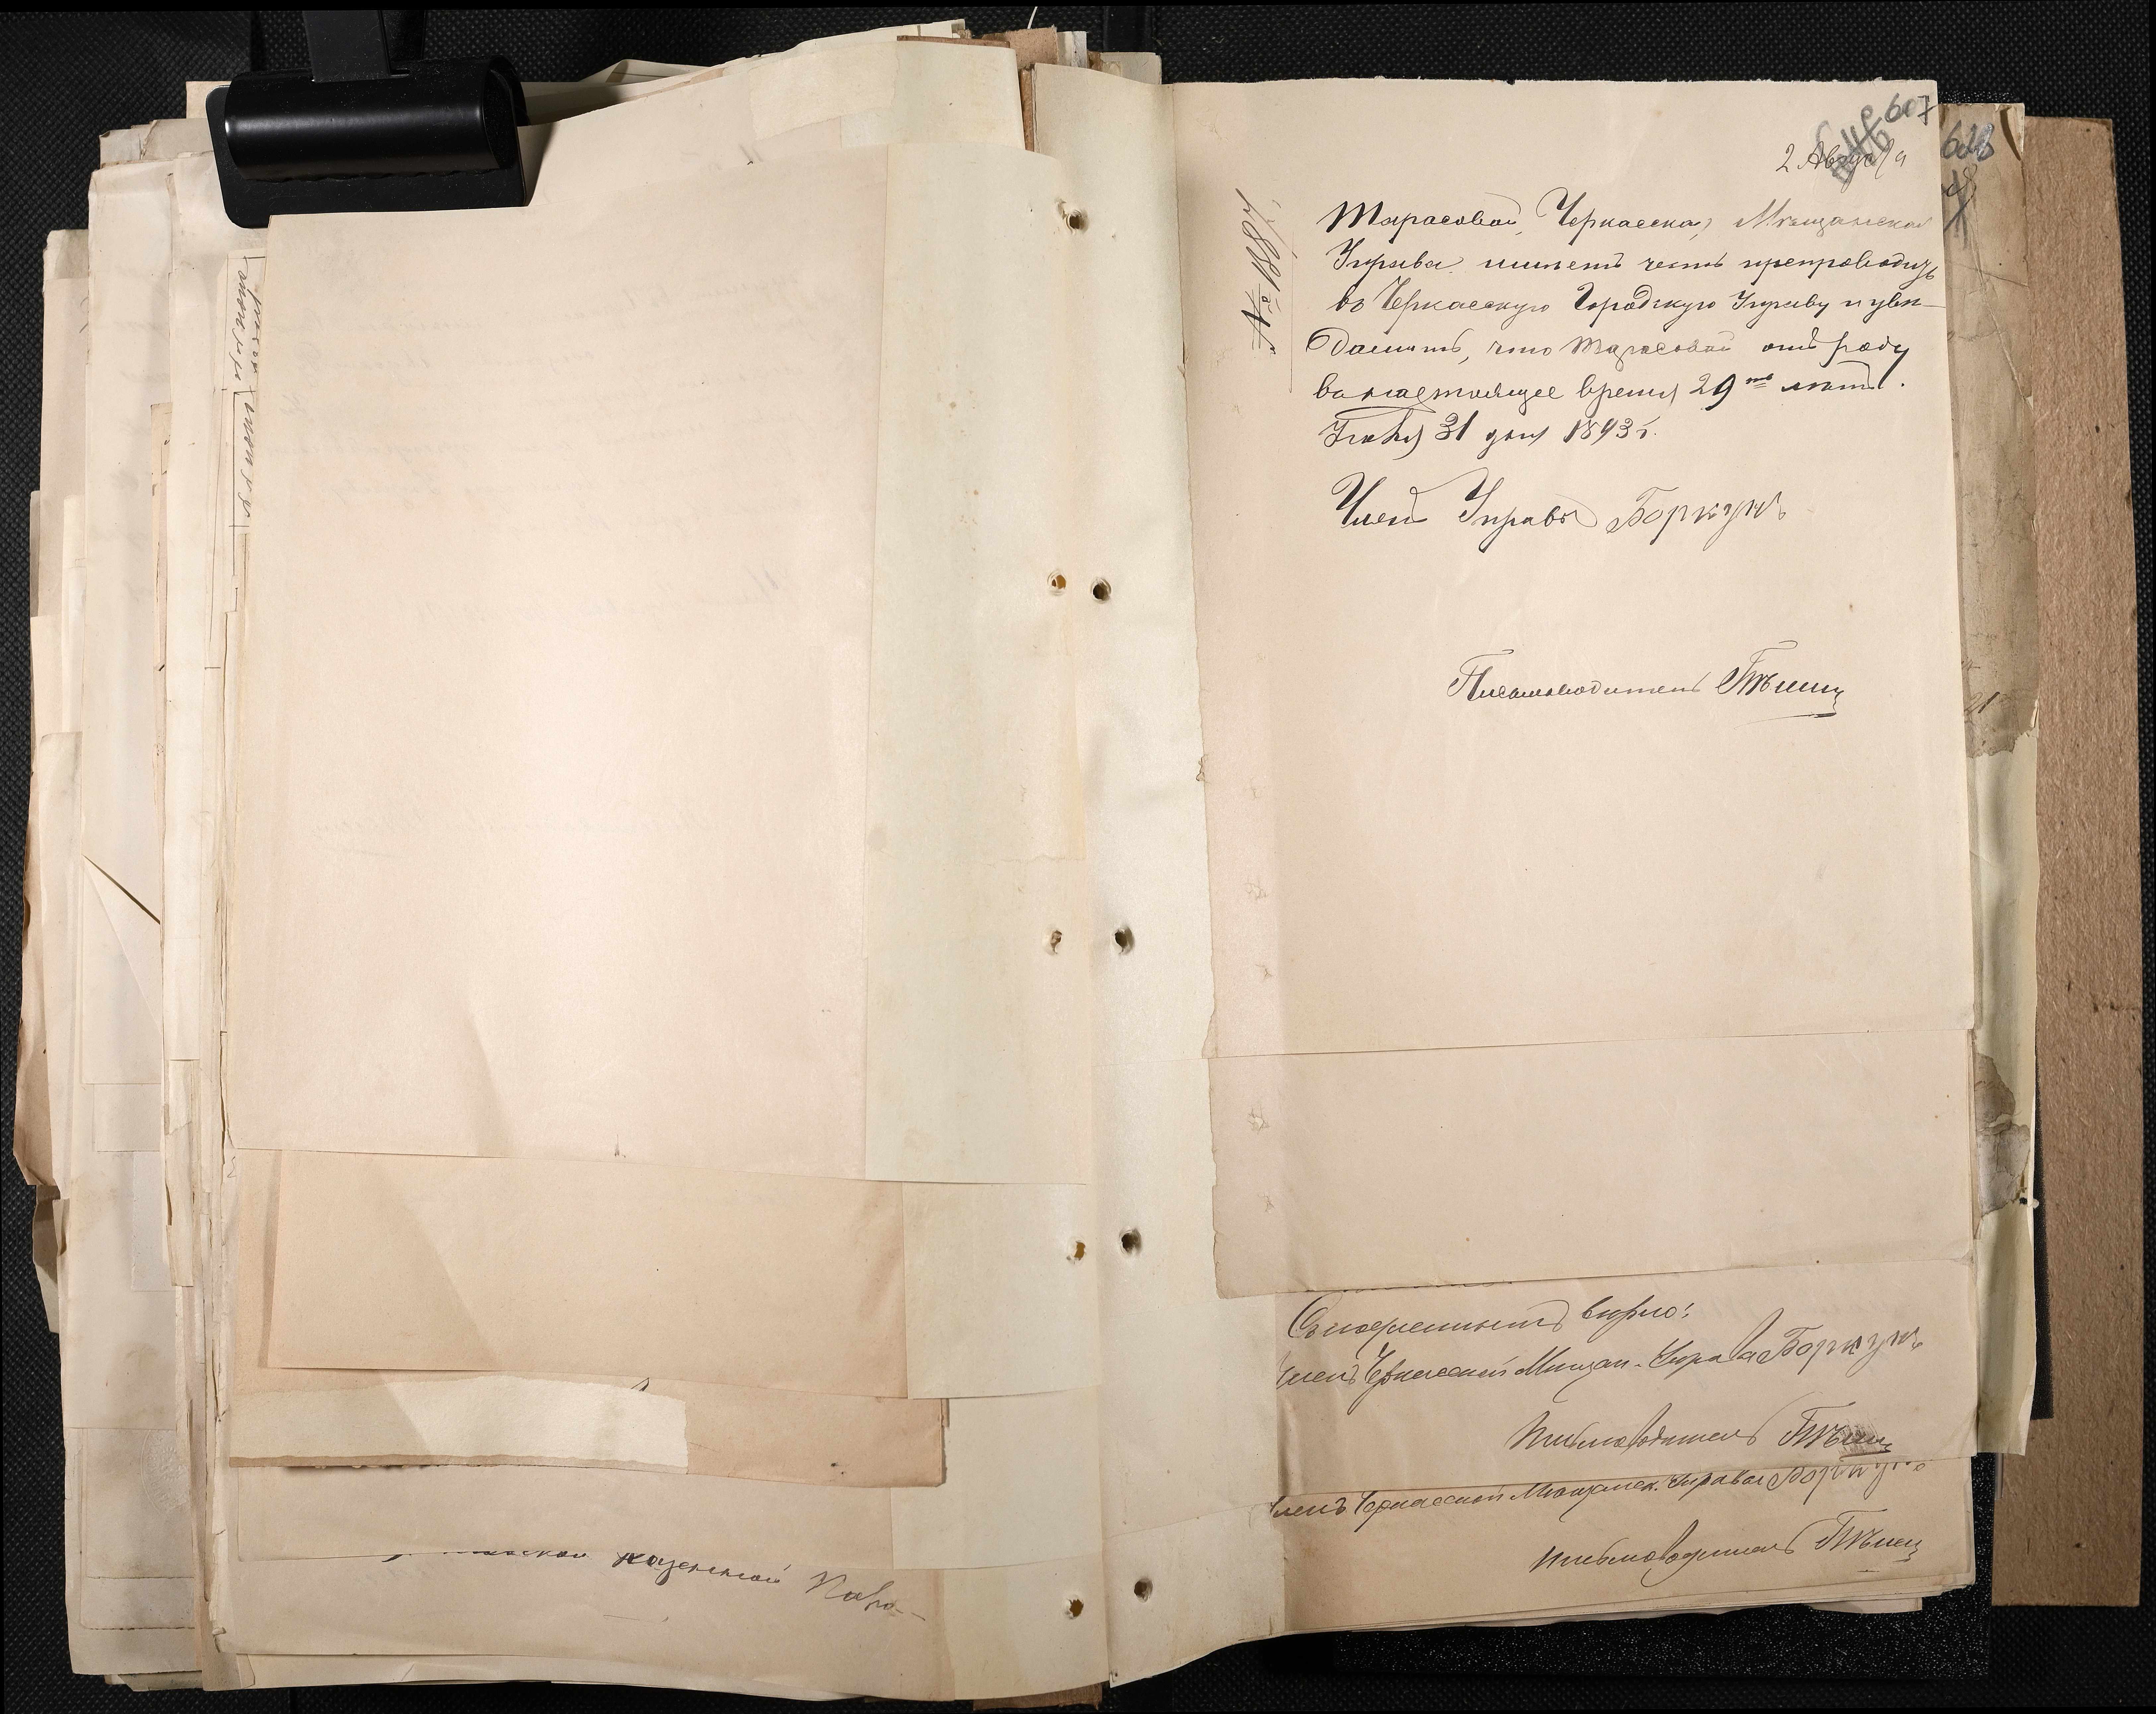 607
2 Августа
628
Тарасовой, Черкасская Мѣщанская
Управа имѣетъ честь препроводить
въ Черкасскую Городскую Управу и увѣ-
домить, что Тарасовой отъ роду
въ настоящее время 29ть лѣтъ.
Іюля 31 дня 1893 г.
Членъ Управы Боркунъ
Письмоводитель
Съ подлиннымъ вѣрно:
Членъ Черкасской Мѣщан. Управы Боркунъ
Письмоводитель
Членъ Черкасской Мѣщанск. Управы Боркунъ
Письмоводитель
казенной Пала-